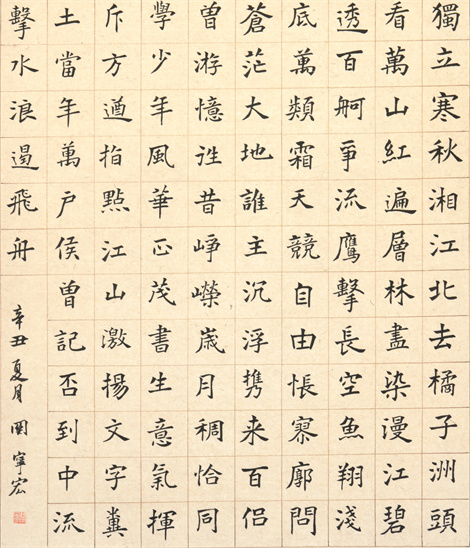 獨立寒秋湘江北去橘子洲頭
看萬山紅遍層林盡染漫江碧
透百舸爭流鷹擊長空魚翔淺
底萬類霜天競自由悵寥廓問
蒼茫大地誰主沉浮携来百侣
曾游憶往昔崢嶸嵗月稠恰同
學少年風華正茂書生意氣揮
斥方遒指點江山激揚文字糞
土當年萬户侯曾記否到中流
擊水浪遏飛舟
辛丑夏月関寧宏